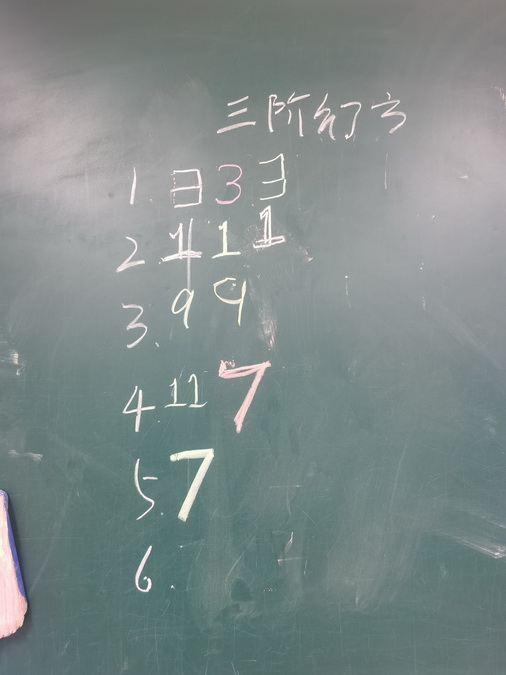 三阶幻方
1. 日 3 3
2. 1 1 1
3. 9 9
4. 11 7
5. 7
6.